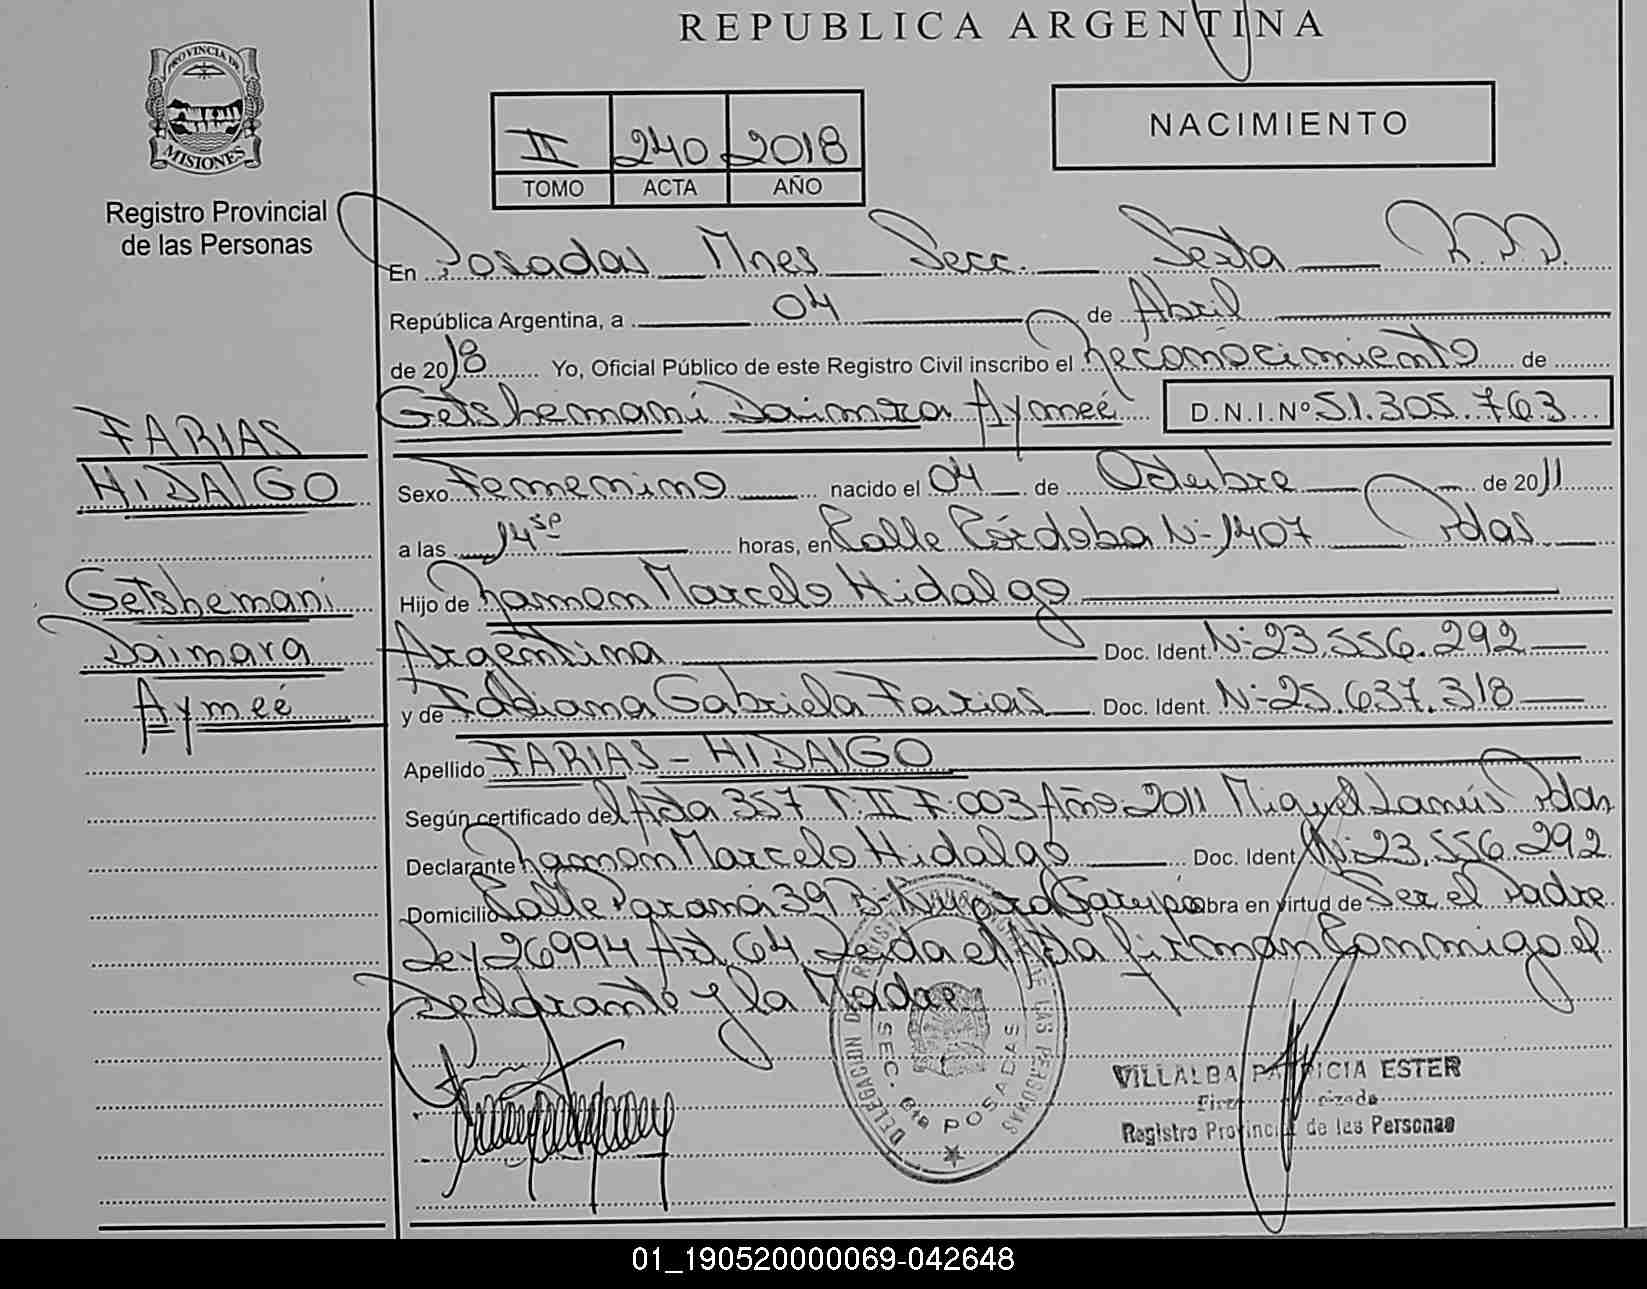 REPUBLICA ARGENTINA
PROVINCIA DE
MISIONES
Registro Provincial
de las Personas
NACIMIENTO
II 240 2018
TOMO ACTA AÑO
En Posadas Mnes Secc. Sexta R.P.P.
República Argentina, a 04 de Abril
de 2018 Yo, Oficial Público de este Registro Civil inscribo el Reconocimiento de
Getshemani Daimara Aymeé D.N.I.Nº 51.305.763
FARIAS
HIDALGO
Getshemani
Daimara
Aymeé
Sexo Femenino nacido el 04 de Octubre de 2011
a las 14 horas, en Calle Córdoba Nº 1407 Pdas
Hijo de Ramon Marcelo Hidalgo
Argentina Doc. Ident. Nº 23.556.292
y de Fabiana Gabriela Farias Doc. Ident. Nº 25.637.318
Apellido FARIAS - HIDALGO
Según certificado del Acta 357 T: II F: 003 Año 2011 Miguel Lanús Pdas
Declarante Ramon Marcelo Hidalgo Doc. Ident Nº 23.556.292
Domicilio Calle Paraná 39 Garupá obra en virtud de Ser el Padre
Ley 26994 Art 64 Leida el Acta firman Conmigo el
Declarante y la Madre
SEC. 6ta POSADAS
VILLALBA PATRICIA ESTER
Registro Provincial de las Personas
01_190520000069-042648